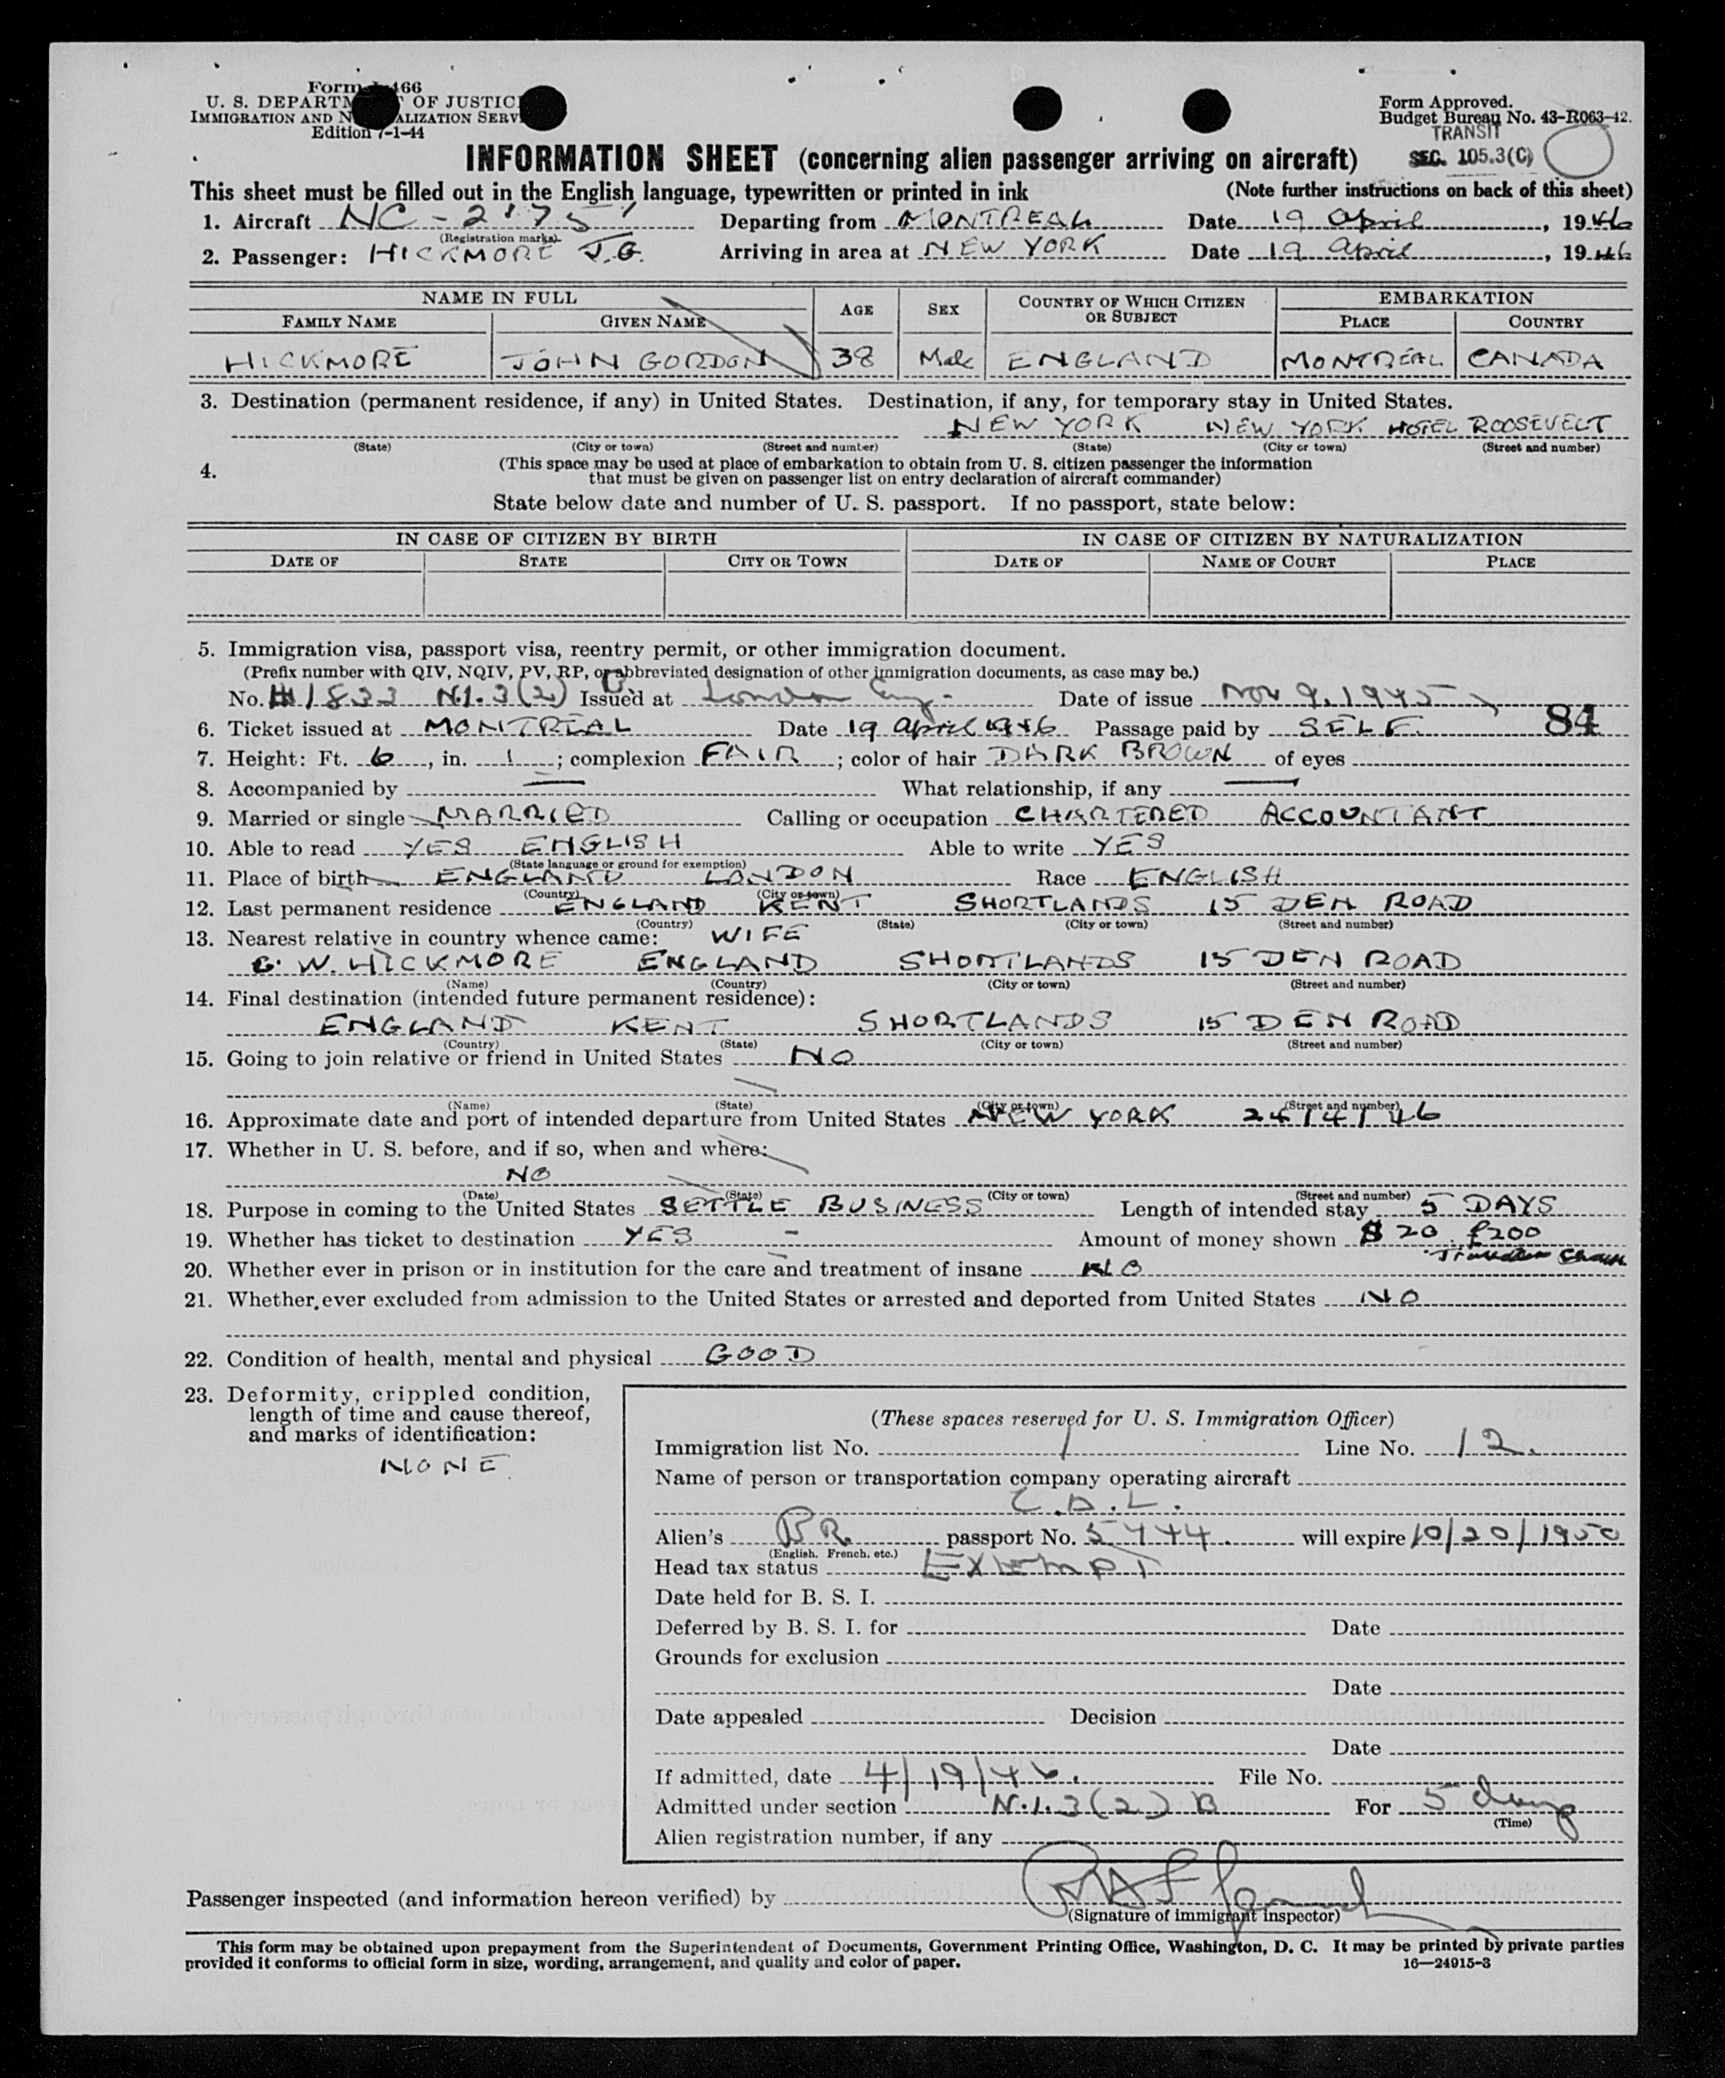 Form I-466
U. S. DEPARTMENT OF JUSTICE
IMMIGRATION AND NATURALIZATION SERVICE
Edition 7-1-44
Form Approved.
Budget Bureau No. 43-R063-42.
TRANSIT
SEC. 105.3(C)
INFORMATION SHEET (concerning alien passenger arriving on aircraft)
This sheet must be filled out in the English language, typewritten or printed in ink (Note further instructions on back of this sheet)
1. Aircraft NC-2175 Departing from MONTREAL Date 19 April, 1946
(Registration marks)
2. Passenger: HICKMORE J.G. Arriving in area at NEW YORK Date 19 April, 1946
NAME IN FULL AGE SEX COUNTRY OF WHICH CITIZEN OR SUBJECT EMBARKATION
FAMILY NAME GIVEN NAME PLACE COUNTRY
HICKMORE JOHN GORDON 38 Male ENGLAND MONTREAL CANADA
3. Destination (permanent residence, if any) in United States. Destination, if any, for temporary stay in United States.
NEW YORK NEW YORK HOTEL ROOSEVELT
(State) (City or town) (Street and number) (State) (City or town) (Street and number)
4. (This space may be used at place of embarkation to obtain from U. S. citizen passenger the information
that must be given on passenger list on entry declaration of aircraft commander)
State below date and number of U. S. passport. If no passport, state below:
IN CASE OF CITIZEN BY BIRTH IN CASE OF CITIZEN BY NATURALIZATION
DATE OF STATE CITY OR TOWN DATE OF NAME OF COURT PLACE
5. Immigration visa, passport visa, reentry permit, or other immigration document.
(Prefix number with QIV, NQIV, PV, RP, or abbreviated designation of other immigration documents, as case may be.)
No. 1833 N.I. 3(2) B Issued at London Eng. Date of issue Nov 9, 1945
84
6. Ticket issued at MONTREAL Date 19 April 1946 Passage paid by SELF
7. Height: Ft. 6, in. 1; complexion FAIR; color of hair DARK BROWN of eyes
8. Accompanied by — What relationship, if any —
9. Married or single MARRIED Calling or occupation CHARTERED ACCOUNTANT
10. Able to read YES ENGLISH Able to write YES
(State language or ground for exemption)
11. Place of birth ENGLAND LONDON Race ENGLISH
(Country) (City or town)
12. Last permanent residence ENGLAND KENT SHORTLANDS 15 DEN ROAD
(Country) (State) (City or town) (Street and number)
13. Nearest relative in country whence came: WIFE
G. W. HICKMORE ENGLAND SHORTLANDS 15 DEN ROAD
(Name) (Country) (City or town) (Street and number)
14. Final destination (intended future permanent residence):
ENGLAND KENT SHORTLANDS 15 DEN ROAD
(Country) (State) (City or town) (Street and number)
15. Going to join relative or friend in United States NO
(Name) (State) (City or town) (Street and number)
16. Approximate date and port of intended departure from United States NEW YORK 24/4/46
17. Whether in U. S. before, and if so, when and where:
NO
(Date) (State) (City or town) (Street and number)
18. Purpose in coming to the United States SETTLE BUSINESS Length of intended stay 5 DAYS
19. Whether has ticket to destination YES - Amount of money shown $ 20 £200
20. Whether ever in prison or in institution for the care and treatment of insane NO
21. Whether ever excluded from admission to the United States or arrested and deported from United States NO
22. Condition of health, mental and physical GOOD
23. Deformity, crippled condition,
length of time and cause thereof,
and marks of identification:
NONE
(These spaces reserved for U. S. Immigration Officer)
Immigration list No. 1 Line No. 12.
Name of person or transportation company operating aircraft
Alien's BR. passport No. 5444. will expire 10/20/1950
(English, French, etc.)
Head tax status EXEMPT
Date held for B. S. I.
Deferred by B. S. I. for Date
Grounds for exclusion
Date
Date appealed Decision
Date
If admitted, date 4/19/46. File No.
Admitted under section N.I. 3(2) B For 5 days
(Time)
Alien registration number, if any
Passenger inspected (and information hereon verified) by
(Signature of immigrant inspector)
This form may be obtained upon prepayment from the Superintendent of Documents, Government Printing Office, Washington, D. C. It may be printed by private parties
provided it conforms to official form in size, wording, arrangement, and quality and color of paper.
16—24915-3